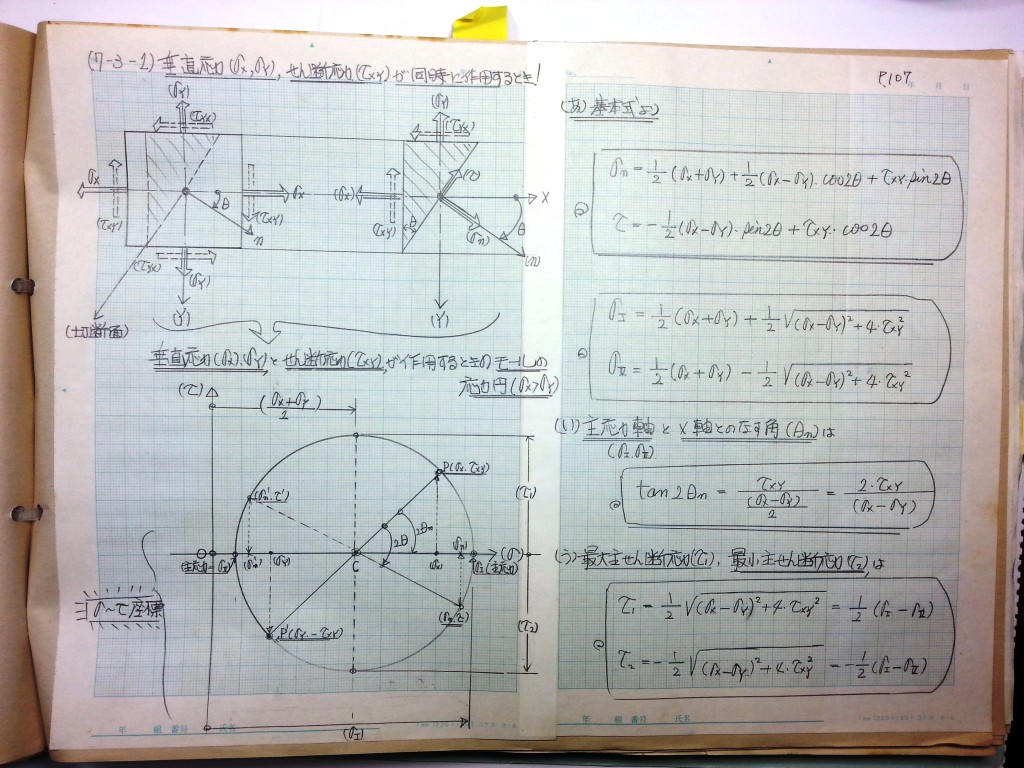 (7-3-1) 垂直応力(σx,σy), せん断応力(τxy)が同時に作用するとき!
P.107
(σy)
(τyx)
σx
(τxy)
σx
(τxy)
θ
n
(τyx)
(σy)
(Y)
(切断面)
(σy)
(τyx)
(τ)
(σx)
X
(τxy)
θ
(σn)
θ
(n)
(Y)
垂直応力(σx),(σy)とせん断応力(τxy)が作用するときのモールの
応力円(σx>σy)
(τ)
(σx+σy)/2
P(σx,τxy)
(σn',τ')
(τ1)
2θ
2θn
O
(σn')
(σy)
C
(σx)
(σn)
(σ)
(主応力-σⅡ)
σⅠ(主応力)
(σn,τ)
P'(σy,-τxy)
(τ2)
σ~τ座標
(σⅠ)
年 組 番号 氏名
(あ) 基本式より
σn = 1/2 (σx+σy) + 1/2 (σx-σy)・cos2θ + τxy・sin2θ
τ = -1/2 (σx-σy)・sin2θ + τxy・cos2θ
σⅠ = 1/2 (σx+σy) + 1/2 √(σx-σy)²+4・τxy²
σⅡ = 1/2 (σx+σy) - 1/2 √(σx-σy)²+4・τxy²
(い) 主応力軸とX軸とのなす角(θn)は
(σⅠ,σⅡ)
tan2θn = τxy/((σx-σy)/2) = 2・τxy/(σx-σy)
(う) 最大主せん断応力(τ1), 最小主せん断応力(τ2)は
τ1 = 1/2 √(σx-σy)²+4・τxy² = 1/2 (σⅠ-σⅡ)
τ2 = -1/2 √(σx-σy)²+4・τxy² = -1/2 (σⅠ-σⅡ)
年 組 番号 氏名